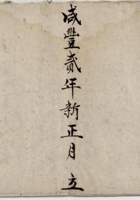 咸豐貳年新正月 立